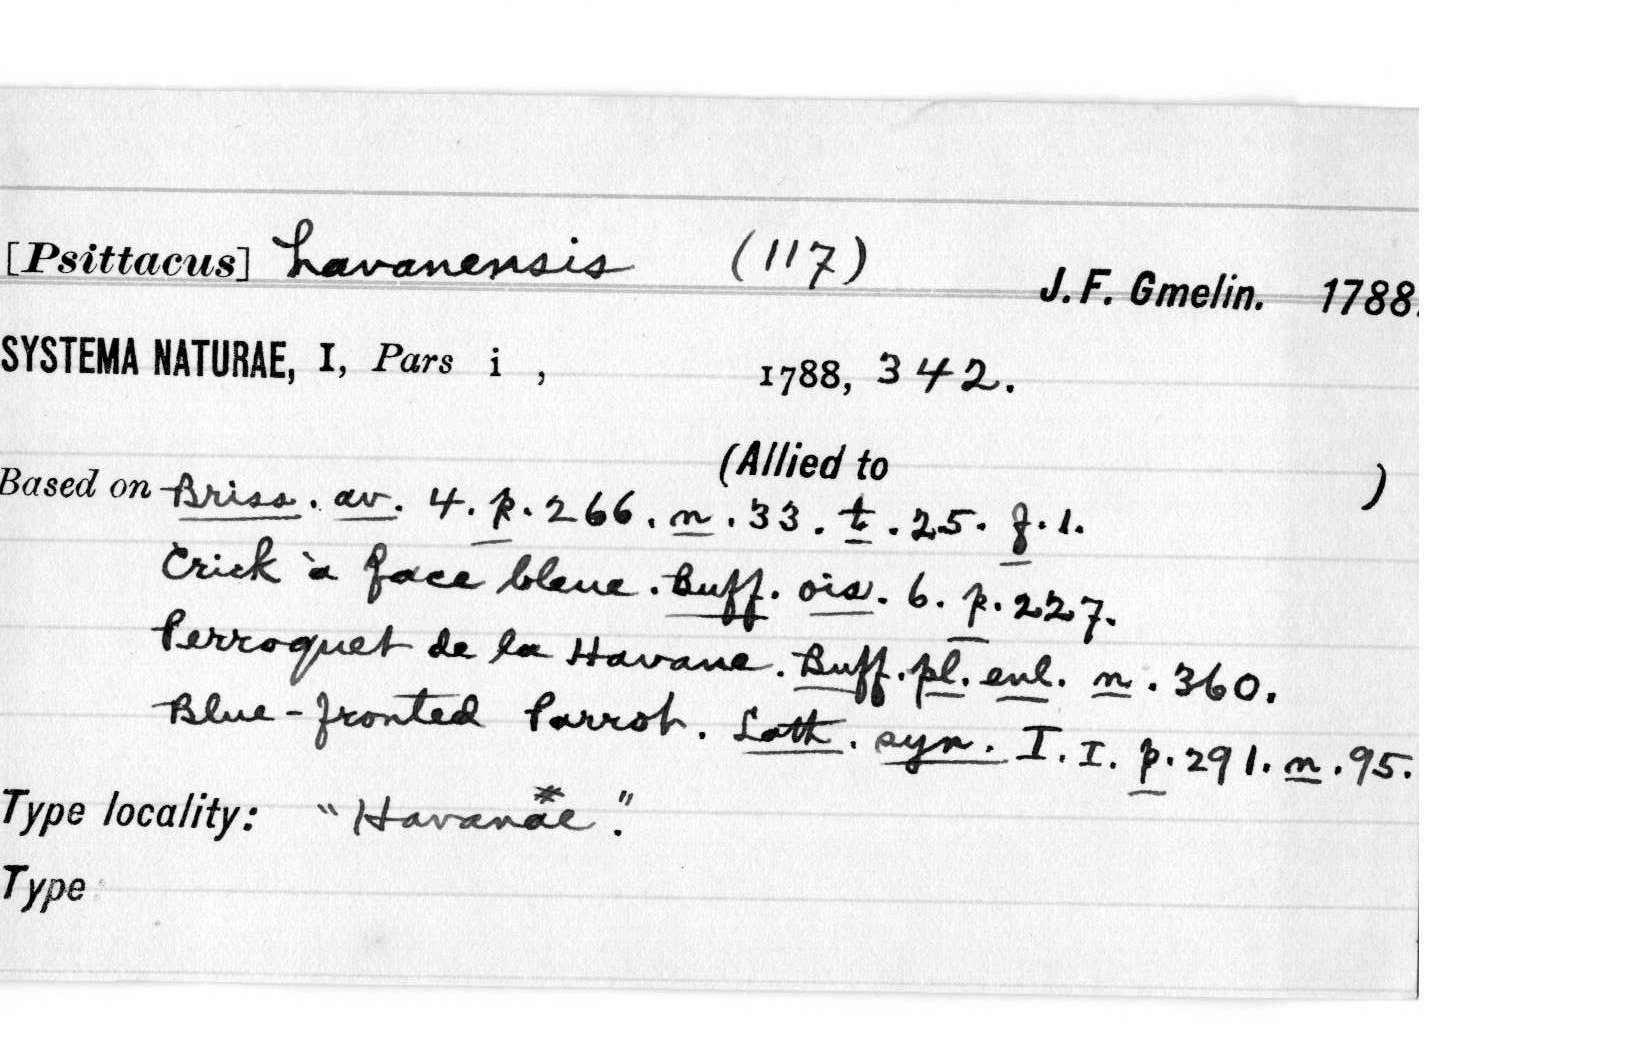 [Psittacus] havanensis (117) J. F. Gmelin. 1788.
SYSTEMA NATURAE, I, Pars i , 1788, 342.
(Allied to )
Based on Briss. av. 4. p. 266. n. 33. t. 25. f. 1.
Crick à face bleue. Buff. ois. 6. p. 227.
Perroquet de la Havane. Buff. pl. enl. n. 360.
Blue-fronted Parrot. Lath. syn. I. I. p. 291. n. 95.
Type locality: "Havanae*."
Type